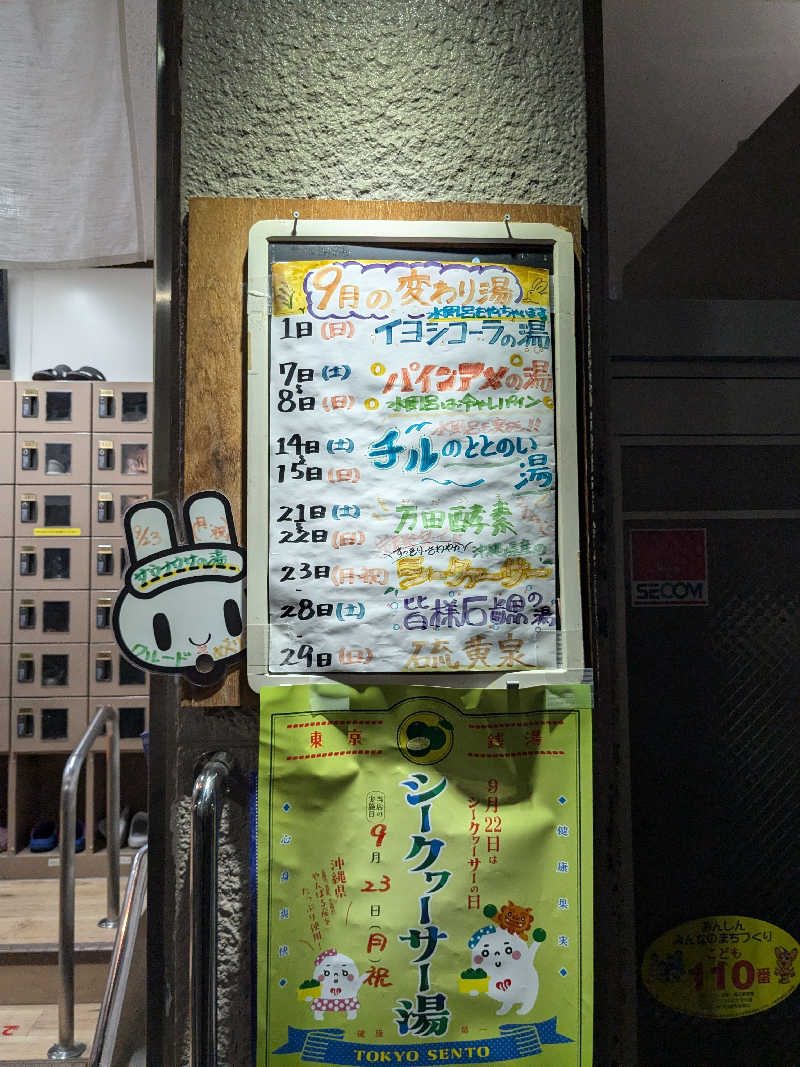 9月の変わり湯
1日(日) イヨシコーラの湯
7日(土)
8日(日)
パインアメの湯
14日(土)
15日(日)
チルのととのい湯
21日(土)
22日(日)
万田酵素
すっきり・さわやか
沖縄県産の
23日(月・祝) シークヮーサー
28日(土)
29日(日)
皆様石鹸の湯
硫黄泉
9/23
月祝
グレード
SECOM
東京 銭湯
9月22日は
シークヮーサーの日
シークヮーサー湯
当店の
実施日
9月23日(月)祝
沖縄県
たっぷり使用
健康果実
心身爽快
TOKYO SENTO
あんしん
みんなのまちづくり
こども
110番